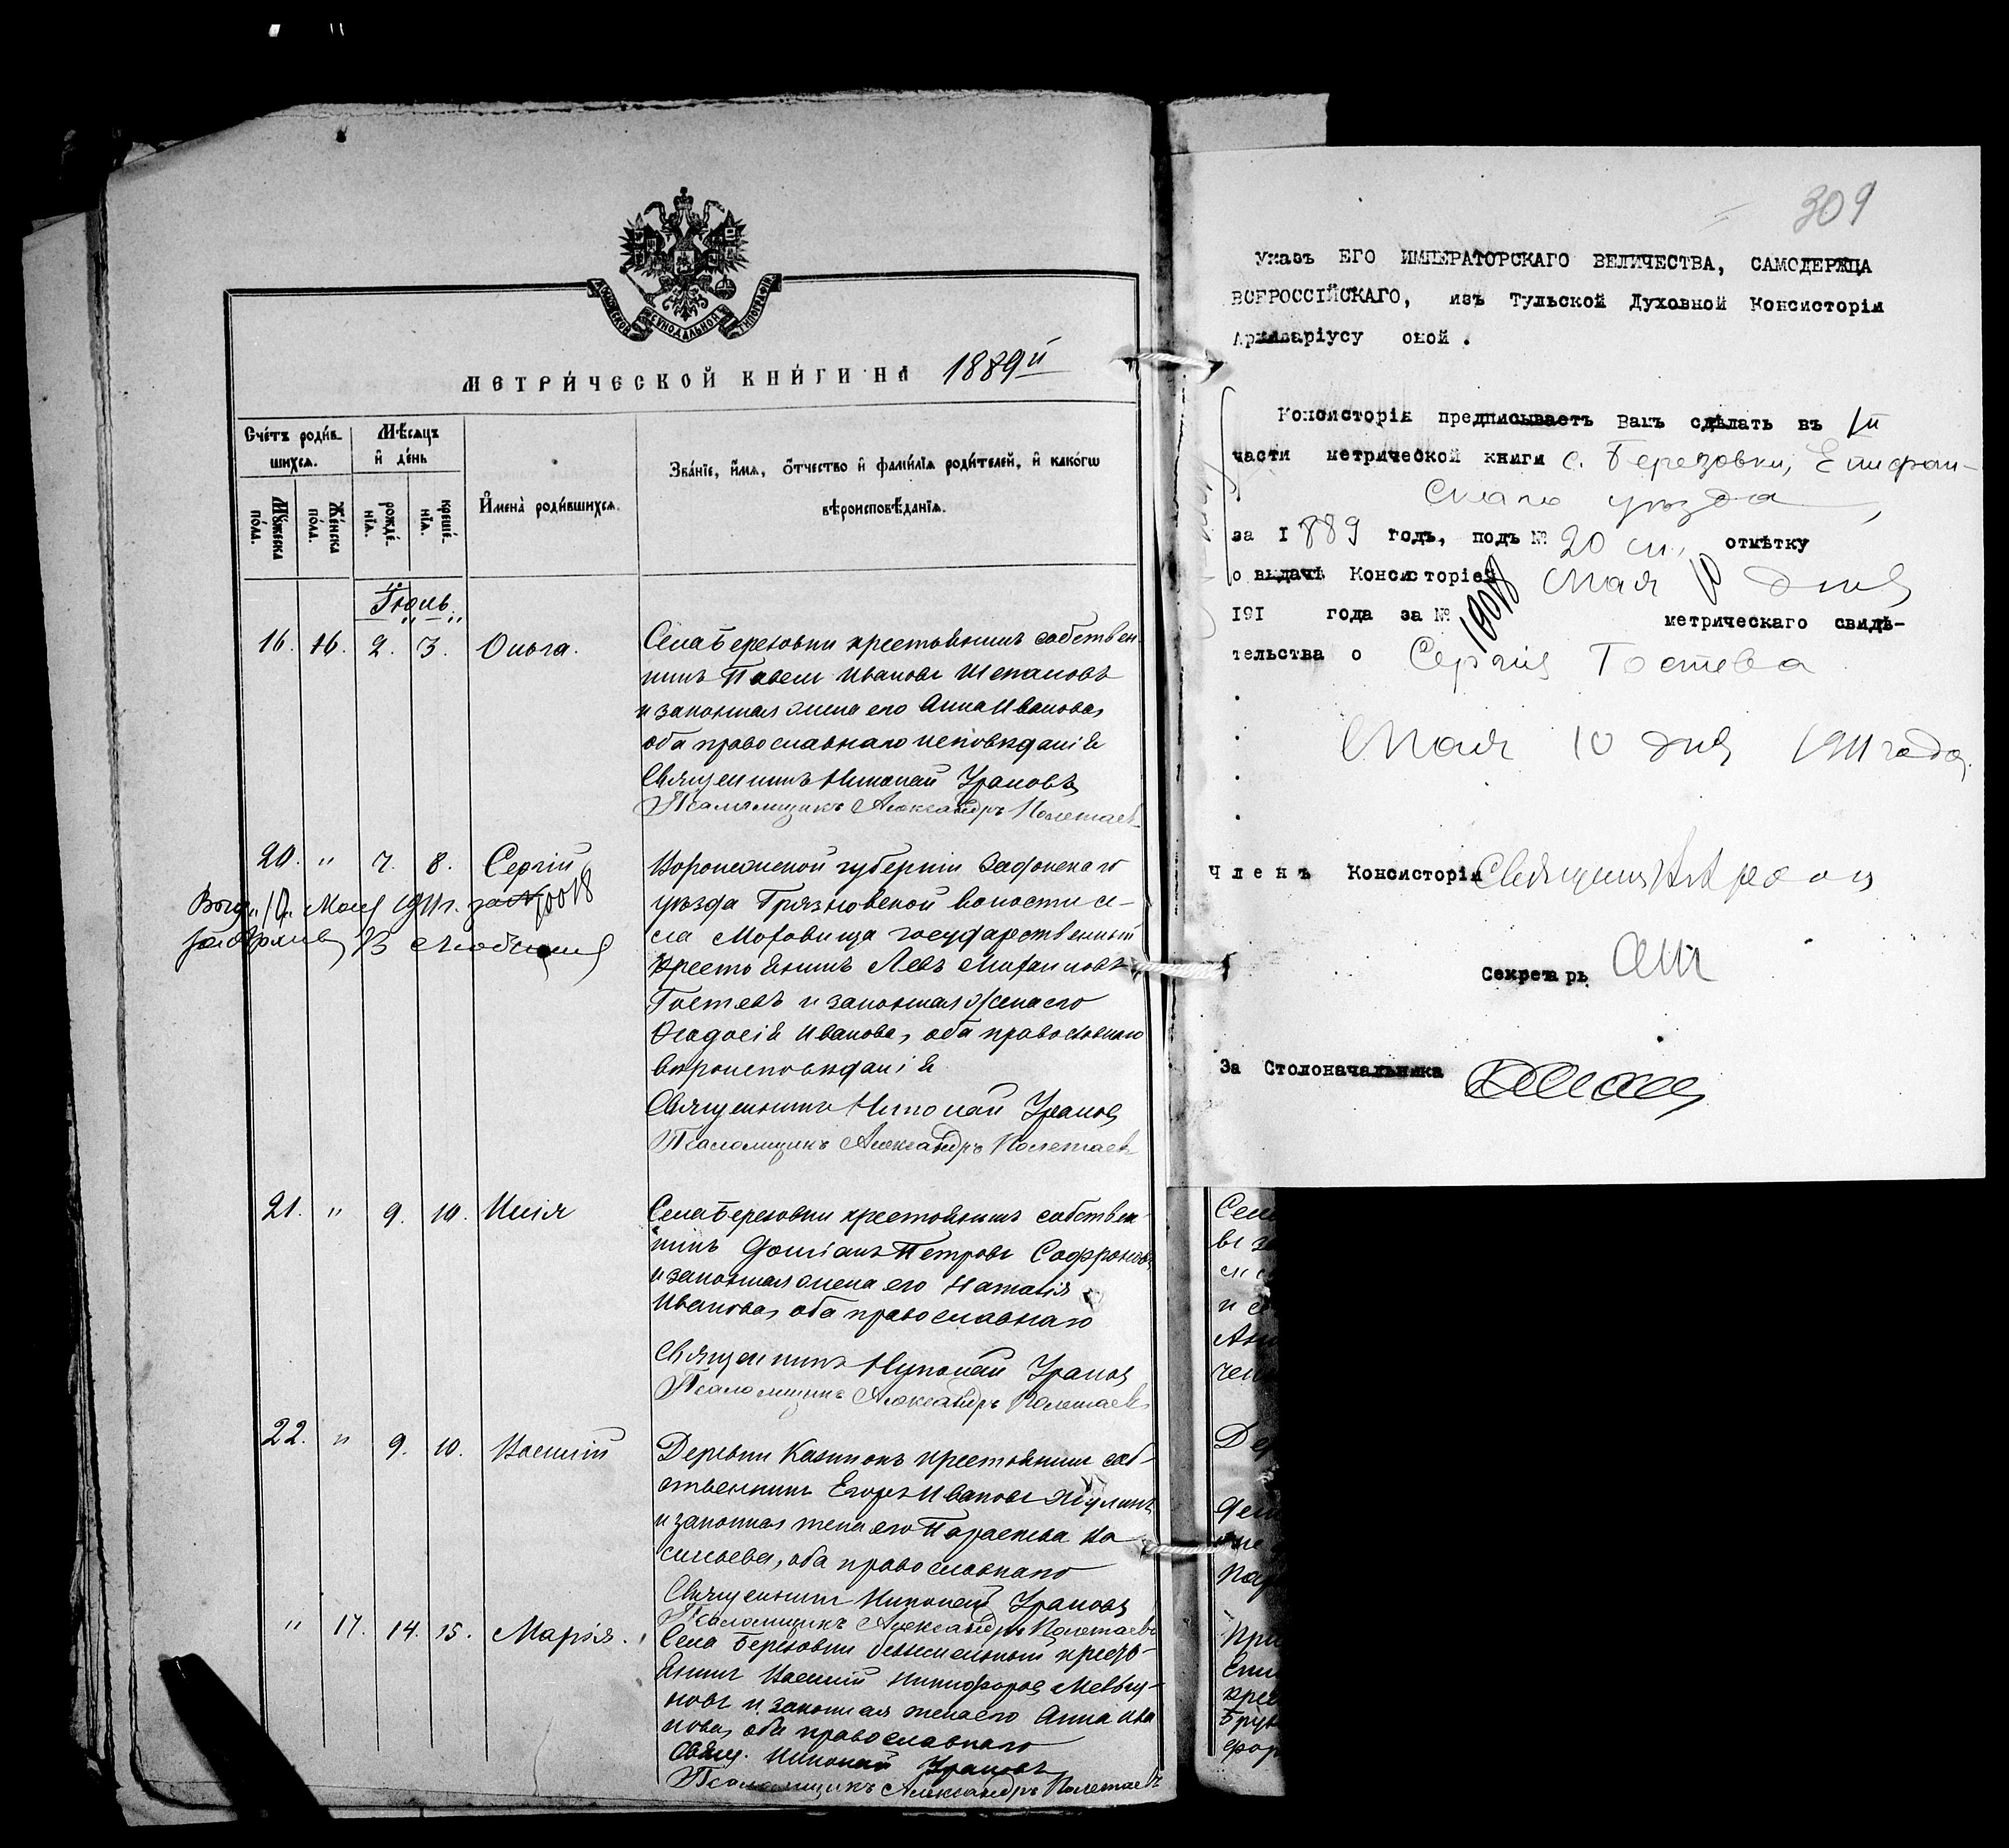 МОСКОВСКОЙ СѴНОДАЛЬНОЙ ТИПОГРАФІИ
МЕТРИ́ЧЕСКОЙ КНИ́ГИ НА 1889й
Сче́тъ роди́в-
шихсѧ.
Мѣ́сѧцъ
и҆ де́нь
Зва́нїе, и҆́мѧ, ѻ҆́тчество и҆ фами́лїѧ роди́телей, и҆ како́гѡ
вѣроисповѣ́данїѧ.
Мꙋ́жеска
по́ла.
Же́нска
по́ла.
рожде́-
нїѧ.
креще́-
нїѧ.
И҆мена̀ роди́вшихсѧ.
Іюль.
16. 16. 2. 3. Ольга.
Села Березовки крестьянинъ собствен-
никъ Павелъ Ивановъ Шепаловъ
и законная жена его Анна Иванова,
оба православнаго исповѣданія
Священникъ Николай Урановъ
Псаломщикъ Александръ Полетаевъ
20. " 7. 8. Сергій
Воронежской губерніи Задонскаго
уѣзда Грязновской волости се-
ла Моховища государственный
крестьянинъ Левъ Михаиловъ
Гостевъ и законная жена его
Ѳеодосія Иванова, оба православнаго
вѣроисповѣданія
Священникъ Николай Урановъ
Псаломщикъ Александръ Полетаевъ
Выд. 10 Мая 1911 г. за № 10018
21. " 9. 10. Илія
Села Березовки крестьянинъ собствен-
никъ Доміанъ Петровъ Софроновъ
и законная жена его Наталія
Иванова, оба православнаго
Священникъ Николай Урановъ
Псаломщикъ Александръ Полетаевъ
22. " 9. 10. Василій
Деревни Казинокъ крестьянинъ соб-
ственникъ Егоръ Ивановъ
и законная жена его Параскева Ва
сильева, оба православнаго
Священникъ Николай Урановъ
Псаломщикъ Александръ Полетаевъ
" 17. 14. 15. Марія.
Села Березовки безземельный кресть-
янинъ Василій Никифоровъ
новъ и законная жена его Анна Ива
нова, оба православнаго
Свящ. Николай Урановъ
Псаломщикъ Александръ Полетаевъ
309
Указъ ЕГО ИМПЕРАТОРСКАГО ВЕЛИЧЕСТВА, САМОДЕРЖЦА
ВСЕРОССІЙСКАГО, изъ Тульской Духовной Консисторіи
Архиваріусу оной.
Консисторія предписываетъ Вамъ сдѣлать въ 1й
части метрической книги с. Березовки, Епифан-
скаго уѣзда,
за 1889 годъ, подъ № 20 м., отмѣтку
о выдачѣ Консисторіей Мая 10 дня
191 года за № 10018 метрическаго свидѣ-
тельства о Сергія Гостева
Мая 10 дня 1911 года.
Членъ Консисторіи Священникъ
Секретарь
За Столоначальника
Села
Анн
Дер
пар
При
Епи
крес